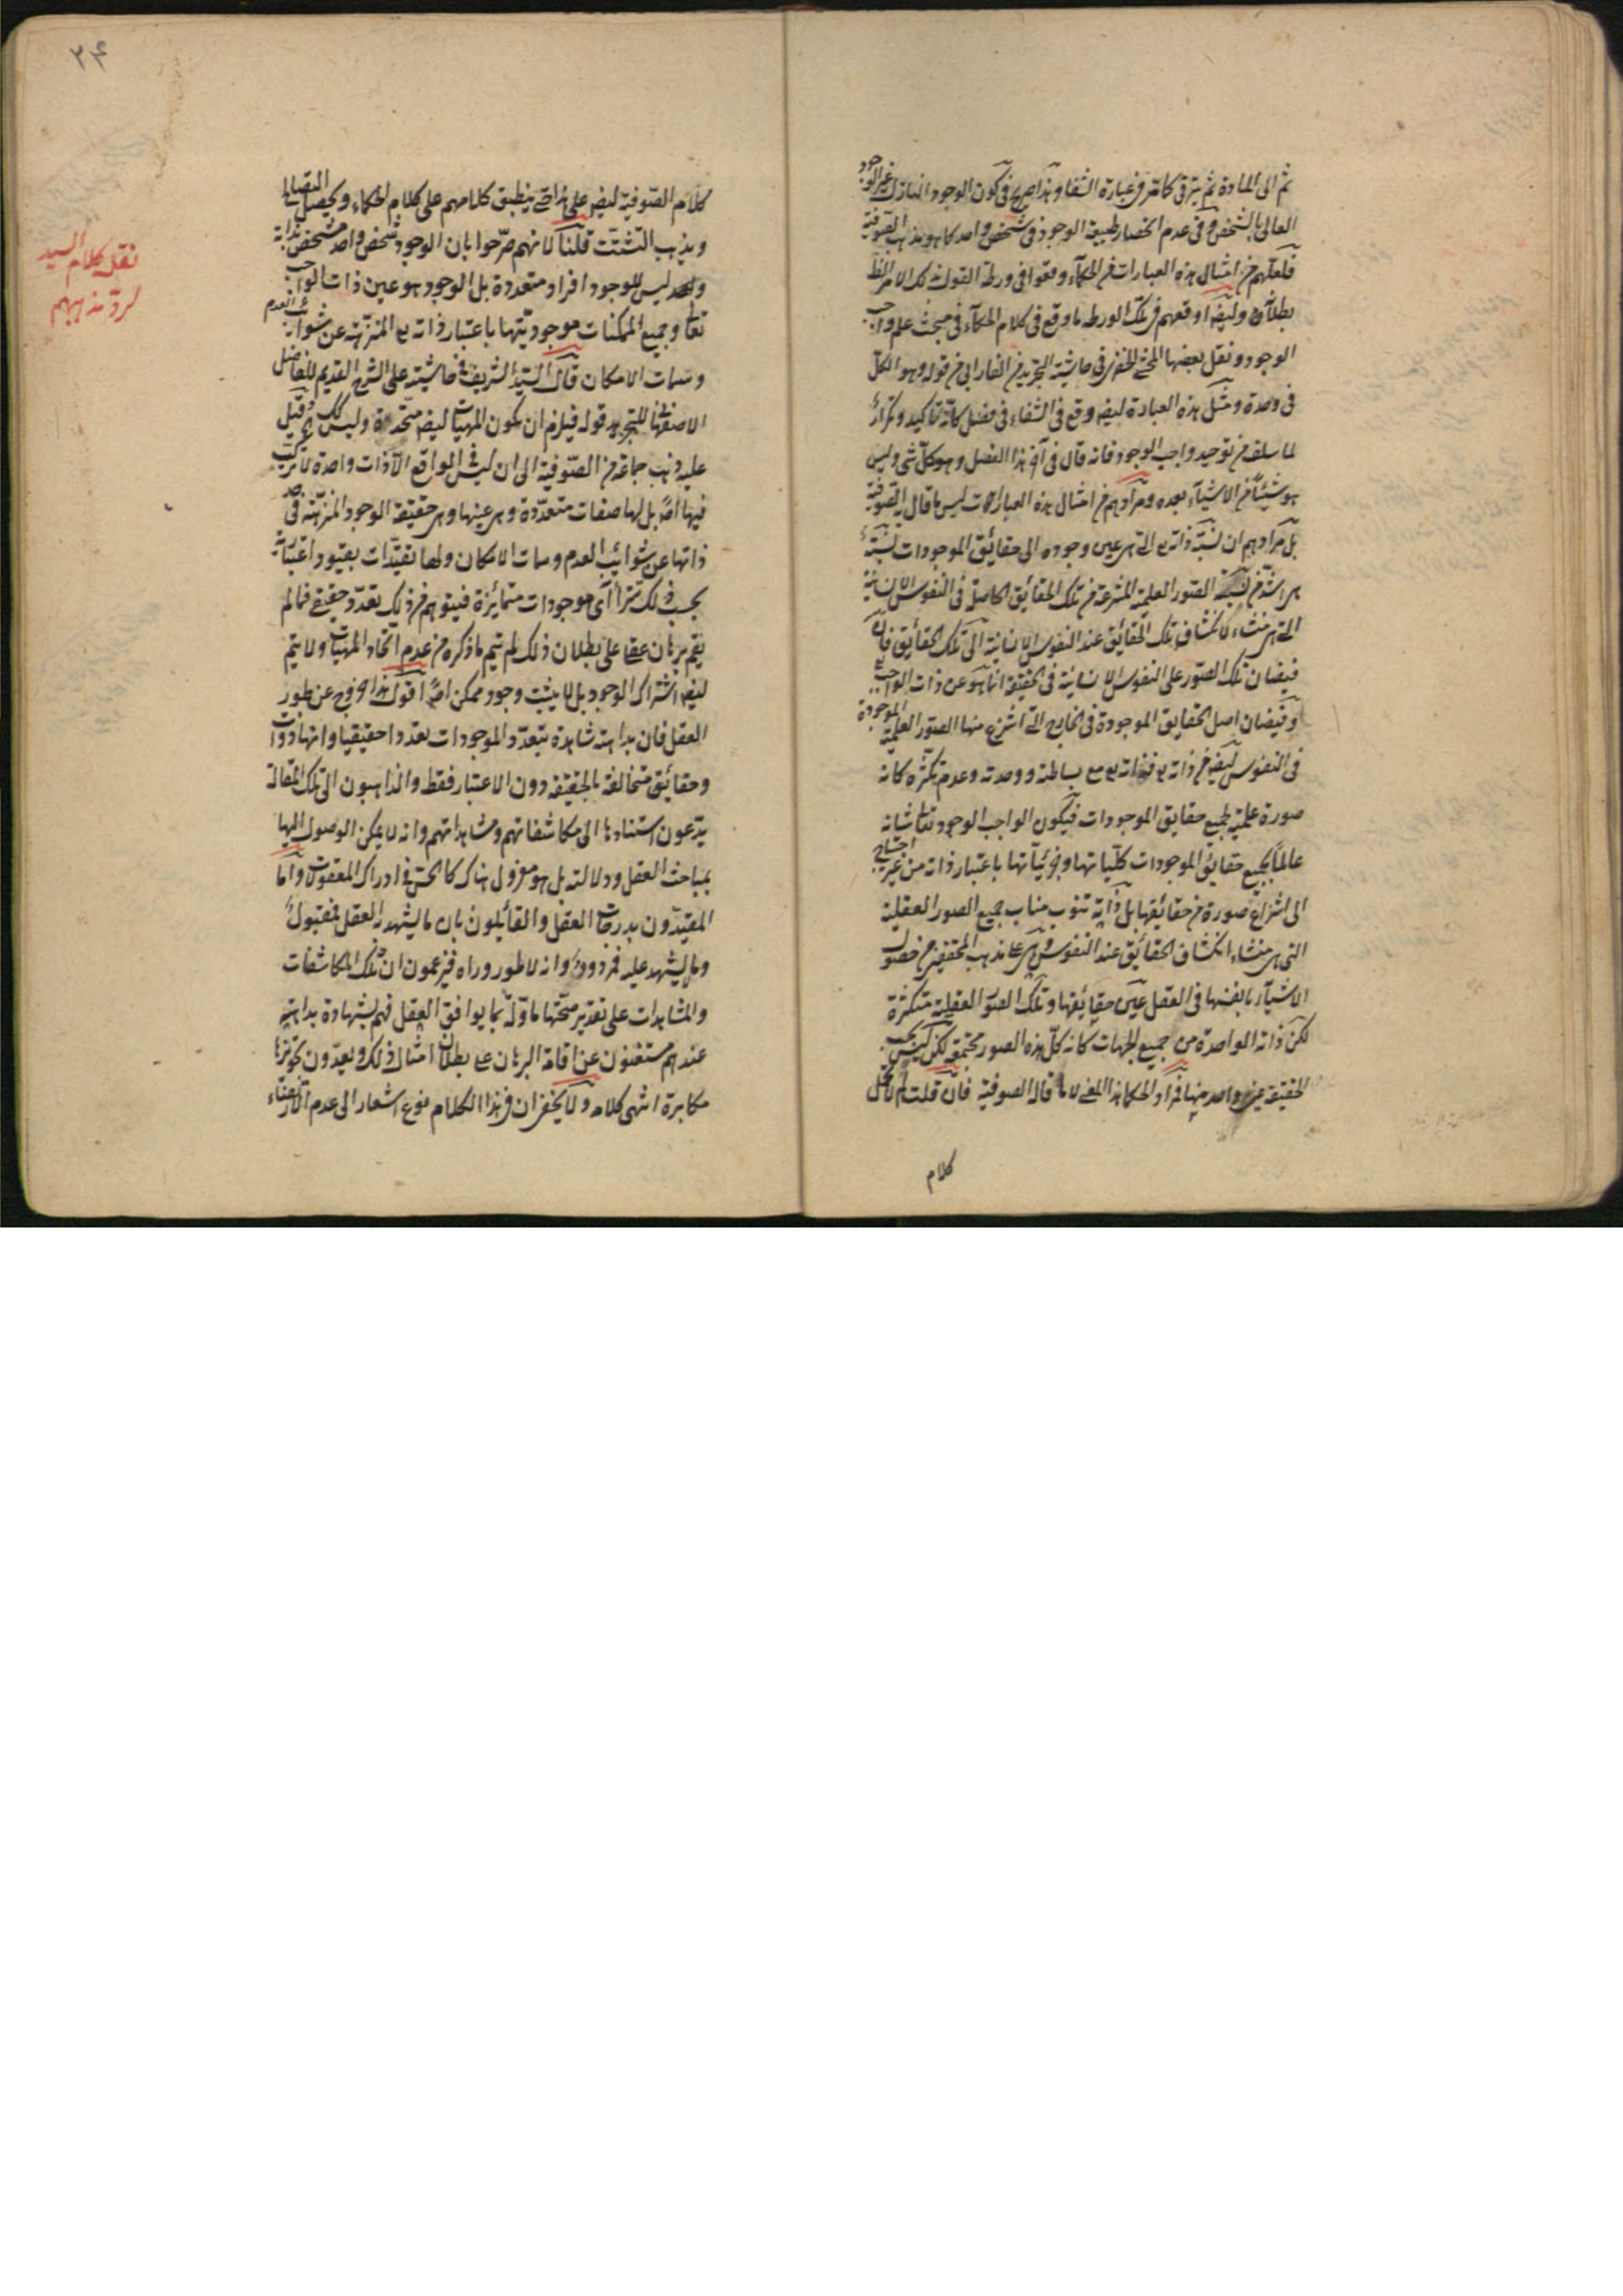 ثم الى المادة ثم يترقى كما مر فى عبارة الشفا وهذا صريح فى كون الوجود النازل غير الوجود
العالى بالشخص وفى عدم انحصار طبيعة الوجود فى شخص واحد كما هو مذهب الصوفية
فلعلهم من امثال هذه العبارات من الحكماء وقعوا فى ورطة القول بذلك الامر الظ
بطلانه وايضا اوقعهم فى تلك الورطه ما وقع فى كلام الحكماء فى مبحث علم واجب
الوجود ونقل بعضها المحشى الخفرى فى حاشية التجريد من الفارابى من قوله وهو الكل
فى وحدة ومثل هذه العبارة ايضا وقع فى الشفاء فى فصل كانه تاكيد وتكرار
لما سلف من توحيد واجب الوجود فانه قال فى آخر هذا الفصل وهو كل شى وليس
هو شيئا من الاشياء بعده ومرادهم من امثال هذه العبارات ليس ما قال الصوفية
بل مرادهم ان نسبة ذاته تع التى هى عين وجوده الى حقائق الموجودات نسبة
هى اشد من نسبة الصور العلمية المنتزعة من تلك الحقائق الحاصلة فى النفوس الانسانية
التى هى منشاء لانكشاف تلك الحقائق عند النفوس الانسانية الى تلك الحقائق فان
فيضان تلك الصور على النفوس الانسانية فى الحقيقة انما هو عن ذات الواجب تع
وفيضان اصل الحقايق الموجودة فى الخارج التى انتزع منها الصور العلمية الموجودة
فى النفوس ايضا من ذاته تع فذاته تع مع بساطته ووحدته وعدم تكثره كانه
صورة علمية لجميع حقايق الموجودات فيكون الواجب الوجود تعا شانه
عالما بجميع حقايق الموجودات كلياتها وجزئياتها باعتبار ذاته من غير احتياج
الى انتزاع صورة من حقائقها بل ذاته تنوب مناب جميع الصور العقلية
التى هى منشاء انكشاف الحقائق عند النفوس وهى على مذهب المحققين من حصول
الاشياء بانفسها فى العقل عين حقايقها وتلك الصور العقلية متكثرة
لكن ذاته الواحدة من جميع الجهات كانه كل هذه الصور مجتمعة لكن ليس بحسب
الحقيقة عين واحد منها فمراد الحكما هذا المعنى لا ما قاله الصوفية فان قلت لم لا تحمل
كلام
٢٤
كلام الصوفية ايضا على هذا حتى ينطبق كلامهم على كلام الحكماء ويحصل التصالح
ويذهب التشتت قلنا لانهم صرحوا بان الوجود شخص واحد متشخص بذاته
وليس للوجود افراد متعددة بل الوجود هو عين ذات الواجب
تعا وجميع الممكنات موجوديتها باعتبار ذاته تع المنزهة عن شوائب العدم
وسمات الامكان قال السيد الشريف فى حاشيته على الشرح القديم للفاضل
الاصفهانى للتجريد قوله فيلزم ان يكون المهيات ايضا متحدة وليس كذلك قيل
عليه ذهب جماعة من الصوفية الى ان ليس فى الواقع الا ذات واحدة لا تركيب
فيها اصلا بل لها صفات متعددة وهى عينها وهى حقيقة الوجود المنزهة فى حد
ذاتها عن شوائب العدم وسمات الامكان ولها تقيدات بقيود اعتبارية
بحسب ذلك تترا آى موجودات متمايزة فيتوهم من ذلك تعدد حقيقى فما لم
يقم برهان عقلى على بطلان ذلك لم يتم ما ذكره من عدم اتحاد المهيات ولا يتم
ايضا اشتراك الوجود بل لا يثبت وجود ممكن اصلا اقول هذا خروج عن طور
العقل فان بداهته شاهدة بتعدد الموجودات تعددا حقيقيا وانها ذوات
وحقائق متخالفة بالحقيقة دون الاعتبار فقط والذاهبون الى تلك المقالة
يدعون استنادها الى مكاشفاتهم ومشاهداتهم وانه لا يمكن الوصول اليها
بمباحث العقل ودلالته بل هو معزول هناك كالحس فى ادراك المعقولات واما
المقيدون بدرجات العقل والقائلون بان ما يشهد له العقل فمقبول
وما يشهد عليه فمردود وانه لا طور وراه فيزعمون ان تلك المكاشفات
والمشاهدات على تقدير صحتها ماوله بما يوافق العقل فهم بشهادة بداهته
عندهم مستغنون عن اقامة البرهان على بطلان امثال ذلك ويعدون تجويزها
مكابرة انتهى كلامه ولا يخفى ان فى هذا الكلام نوع اشعار الى عدم الاعتناء
نقل كلام السيد
لرد مذهبهم